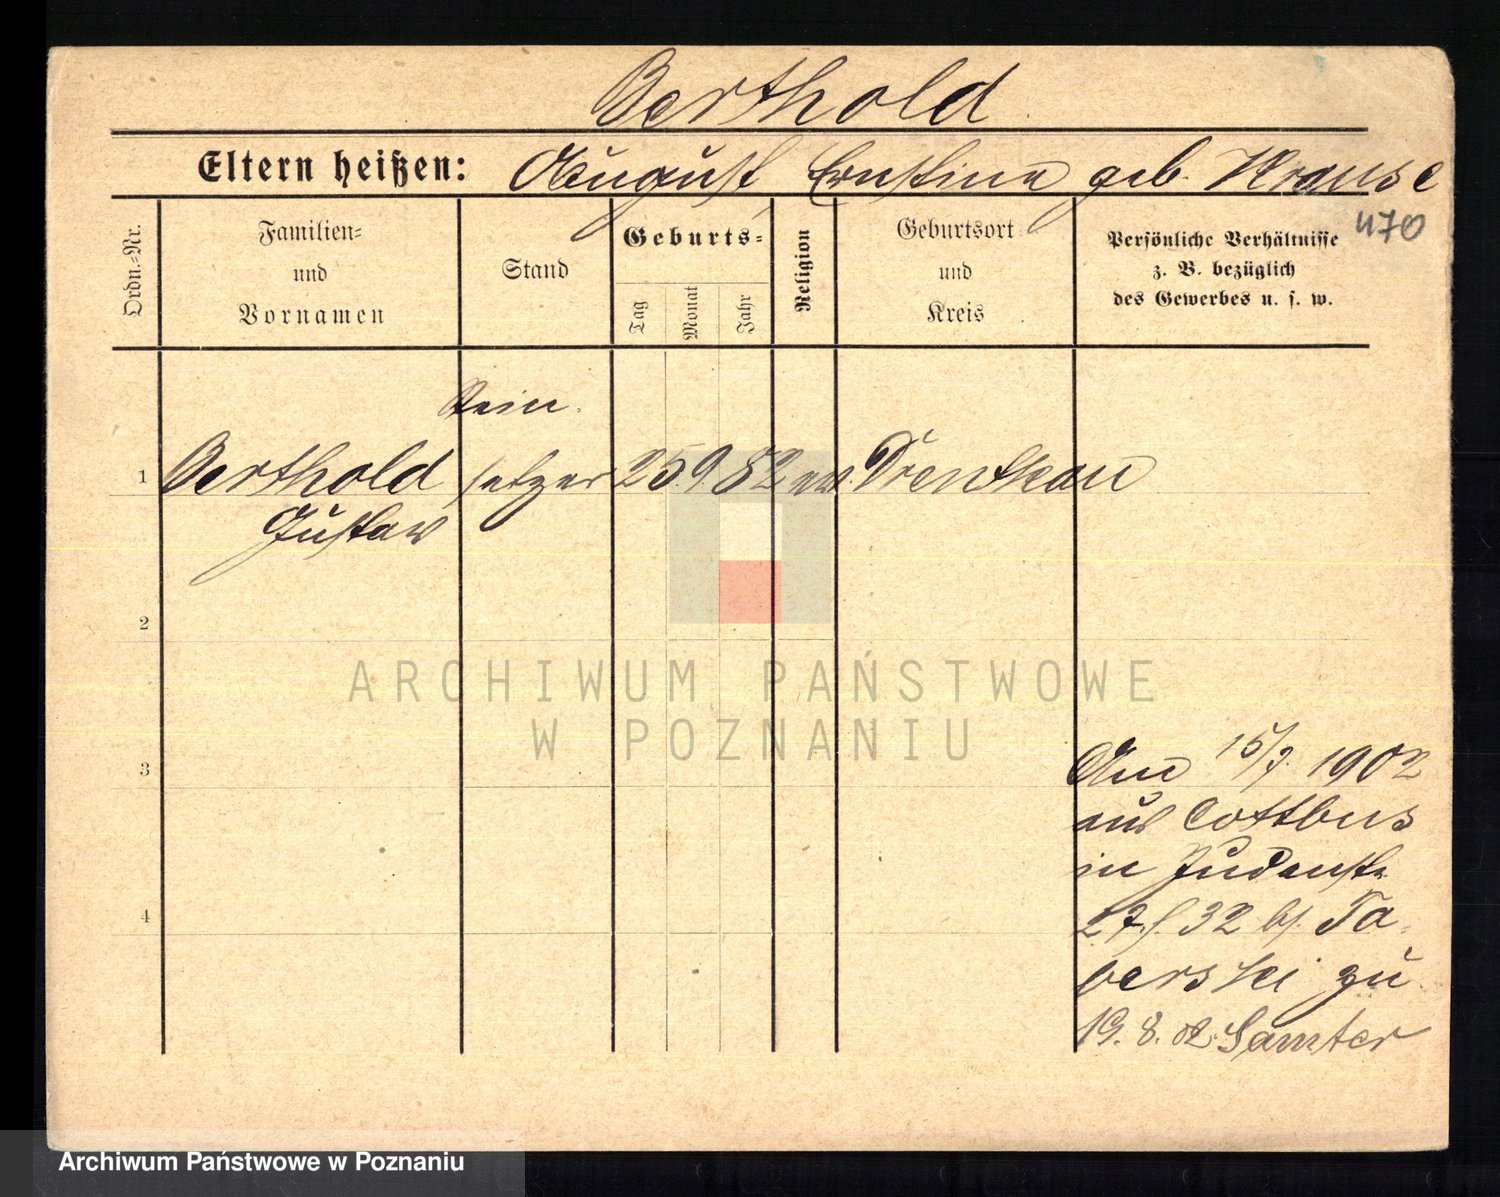 Berthold
Eltern heißen: August Ernstine geb. Krause
470
Ordn.-Nr.
Familien-
und
Vornamen
Stand
Geburts-
Tag
Monat
Jahr
Religion
Geburtsort
und
Kreis
Persönliche Verhältnisse
z. B. bezüglich
des Gewerbes u. s. w.
Stein
1 Berthold setzer 25 9 52 ev. Drentkau
Gustav
2
3
4
Am 15/7. 1902
aus Cottbus
in Judenstr
32 bj. Ta-
berski zu
19. 8. 02 Samter
ARCHIWUM PAŃSTWOWE
W POZNANIU
Archiwum Państwowe w Poznaniu